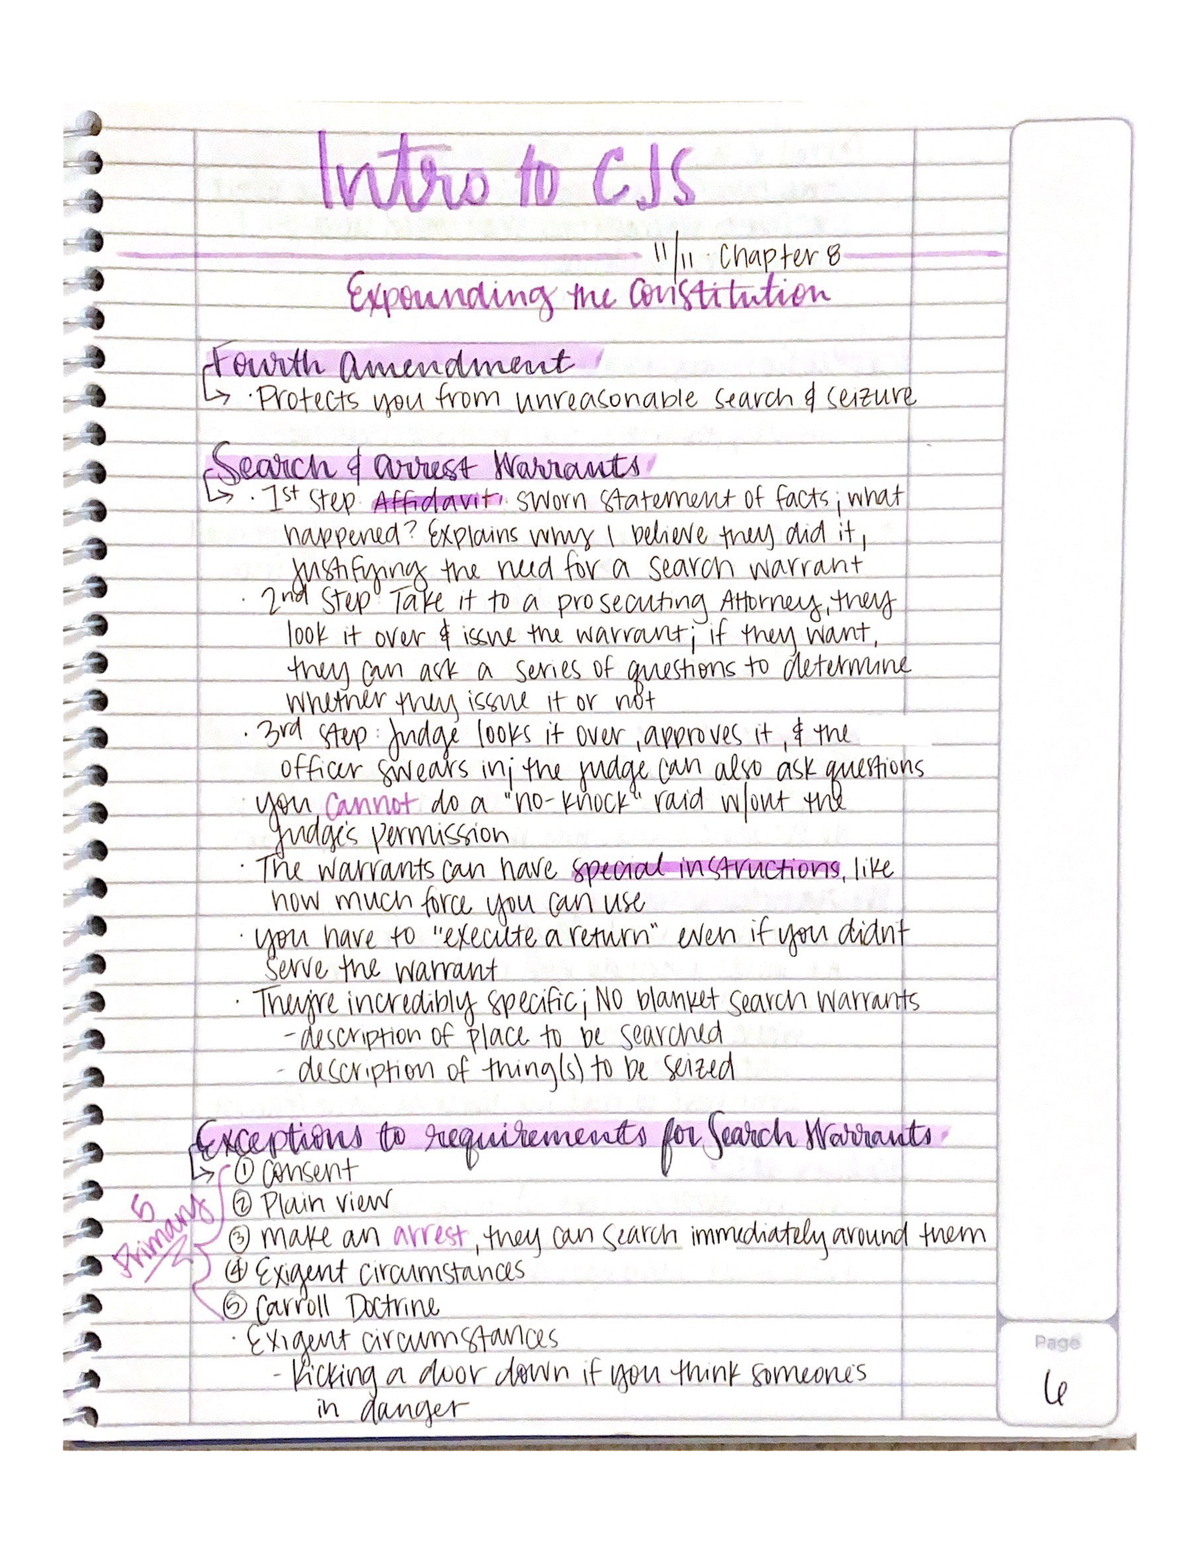 Intro to CJS
11/11 · Chapter 8
Expounding the Constitution
Fourth Amendment
↳ · Protects you from unreasonable search & seizure
Search & Arrest Warrants
↳ · 1st step: Affidavit: sworn statement of facts; what
happened? Explains why I believe they did it,
justifying the need for a search warrant
· 2nd Step: Take it to a prosecuting Attorney, they
look it over & issue the warrant; if they want,
they can ask a series of questions to determine
whether they issue it or not
· 3rd step: Judge looks it over, approves it, & the
officer swears in; the judge can also ask questions
you cannot do a "no-knock" raid w/out the
judge's permission
· The warrants can have special instructions, like
how much force you can use
· you have to "execute a return" even if you didn't
serve the warrant
· They're incredibly specific; NO blanket search warrants
- description of place to be searched
- description of thing(s) to be seized
Exceptions to requirements for Search Warrants
↳ ① Consent
② Plain view
5 Primary
③ make an arrest, they can search immediately around them
④ Exigent circumstances
⑤ Carroll Doctrine
· Exigent circumstances
- Kicking a door down if you think someone's
in danger
Page
6